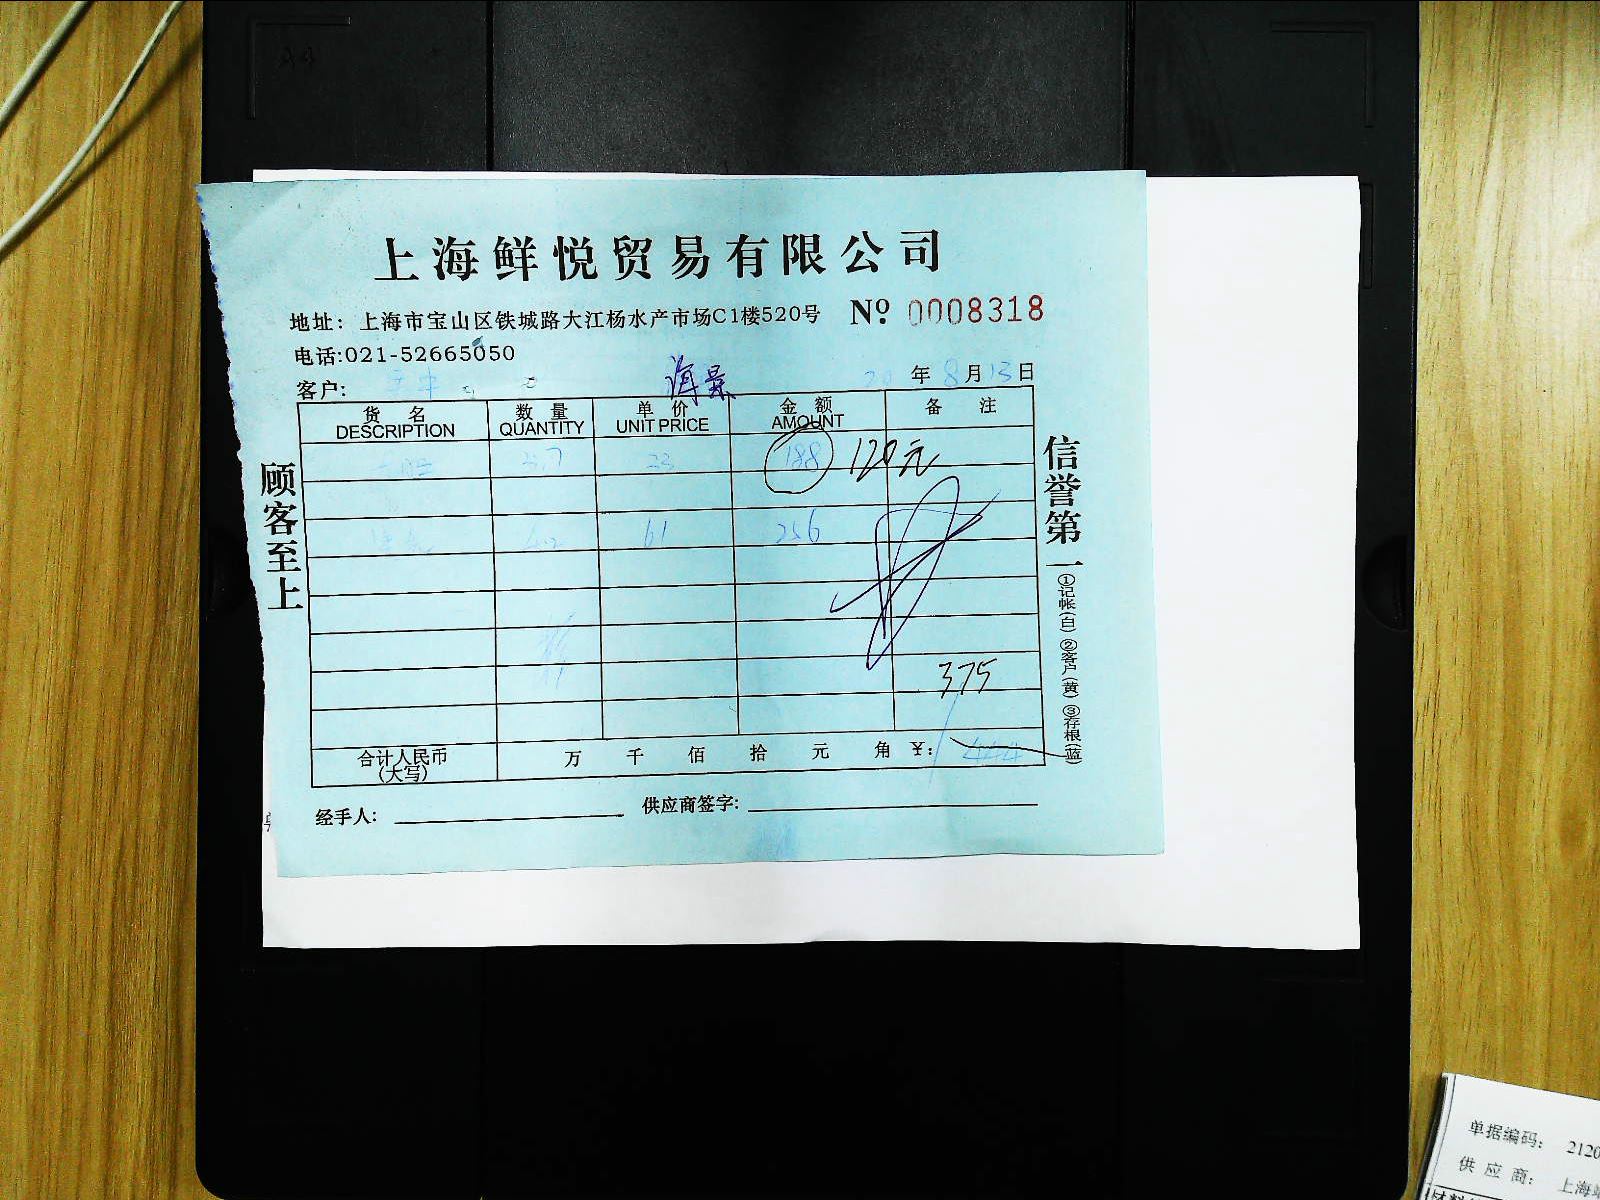 上海鲜悦贸易有限公司
地址：上海市宝山区铁城路大江杨水产市场C1楼520号 Nº 0008318
电话:021-52665050
客户: 海景 20 年 8 月 13 日
货名 数量 单价 金额 备注
DESCRIPTION QUANTITY UNIT PRICE AMOUNT
23 188 120元
61 256
375
合计人民币(大写) 万 千 佰 拾 元 角 ¥: 444
经手人: 供应商签字:
顾客至上
信誉第一
①记帐(白)②客户(黄)③存根(蓝)
单据编码: 2120
供应商: 上海